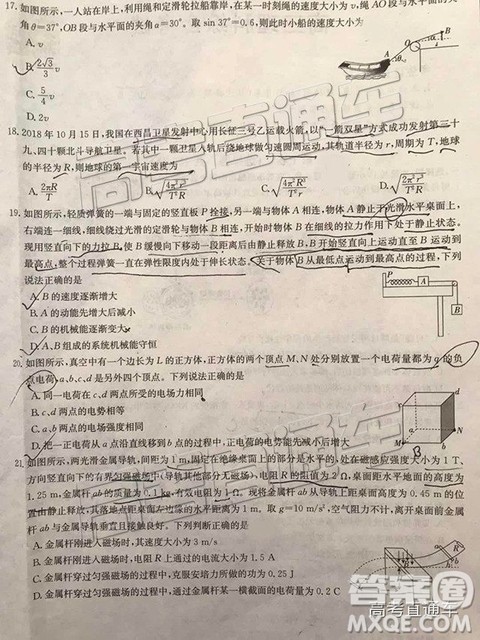 17. 如图所示,一人站在岸上,利用绳和定滑轮拉船靠岸,在某一时刻绳的速度大小为v,绳AO段与水平面的夹
角θ=37°,OB段与水平面的夹角α=30°。取sin 37°=0.6,则此时小船的速度大小为
A. v
B. 2√3/3 v
C. 5/4 v
D. 2v
18. 2018年10月15日,我国在西昌卫星发射中心用长征三号乙运载火箭,以"一箭双星"方式成功发射第三十
九、四十颗北斗导航卫星。若其中一颗卫星入轨后绕地球做匀速圆周运动,其轨道半径为r,周期为T,地球
的半径为R,则地球的第一宇宙速度为
A. 2πR/T
B. √(4π²r³/T²R)
C. √(4π²R³/T²r)
D. √(2πr³/T²R)
19. 如图所示,轻质弹簧的一端与固定的竖直板P拴接,另一端与物体A相连,物体A静止于光滑水平桌面上,
右端连一细线,细线绕过光滑的定滑轮与物体B相连。开始时用手托住B,让细线恰好伸直,
现用竖直向下的力拉B,使B缓慢向下移动一段距离后由静止释放B,
最高点,整个过程弹簧一直在弹性限度内处于伸长状态。关于物体B从最低点运动到最高点的过程,下列
说法正确的是
A. B的速度逐渐增大
B. A的动能先增大后减小
C. B的机械能逐渐增大
D. A、B组成的系统机械能守恒
P
A
B
20. 如图所示,真空中有一个边长为L的正方体,正方体的两个顶点M、N处分别放置一个电荷量都为q的负
点电荷,a、b、c、d是另外四个顶点。下列说法正确的是
A. 同一电荷在c、d两点所受的电场力相同
B. c、d两点的电势相等
C. b、c两点的电场强度相等
D. 把正电荷从a点沿直线移到b点的过程中,正电荷的电势能先减小后增大
M
d
c
a
N
b
B
21. 如图所示,两光滑金属导轨,间距为1 m,固定在绝缘桌面上的部分是水平的,处在磁感应强度大小为1 T、
方向竖直向下的有界匀强磁场中(导轨其他部分无磁场),电阻R的阻值为2 Ω,桌面距水平地面的高度为
1.25 m,金属杆ab的质量为0.1 kg,有效电阻为1 Ω。现将金属杆ab从导轨上距桌面高度为0.45 m的
位置由静止释放,其落地点距桌面左边缘的水平距离为1 m。取g=10 m/s²,空气阻力不计,离开桌面前金
属杆ab与金属导轨垂直且接触良好。下列说法正确的是
A. 金属杆刚进入磁场时,其速度大小为3 m/s
B. 金属杆刚进入磁场时,电阻R上通过的电流大小为1.5 A
C. 金属杆穿过匀强磁场的过程中,克服安培力所做的功为0.25 J
D. 金属杆穿过匀强磁场的过程中,通过金属杆某一横截面的电荷量为0.2 C
高考直通车
答案圈
高考直通车